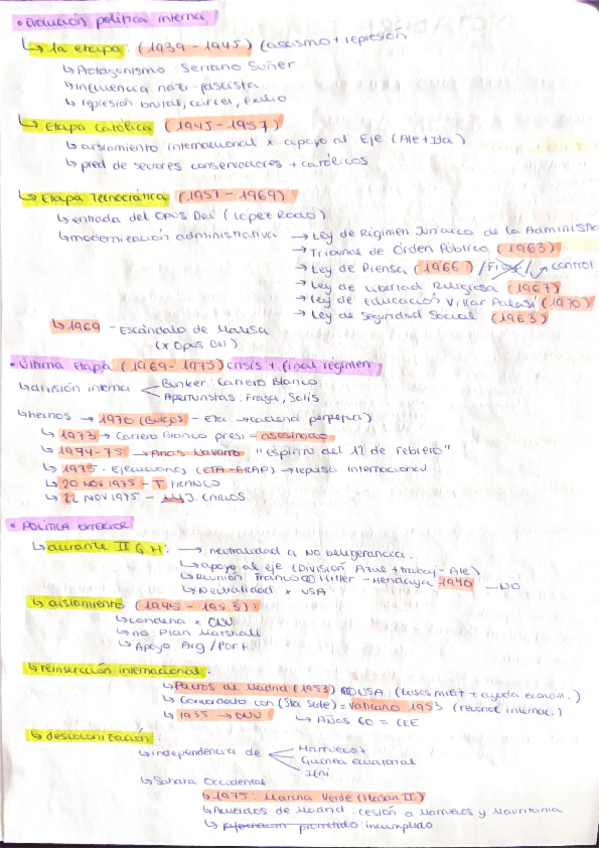 • Evolución política interna
↳ 1a etapa: (1939 - 1945) (fascismo + represión
↳ Protagonismo: Serrano Suñer
↳ influencia nazi-fascista
↳ represión brutal, cárcel, exilio
↳ Etapa Católica (1945 - 1957)
↳ aislamiento internacional x apoyo al Eje (Ale + Ita)
↳ pred de sectores conservadores + católicos
↳ Etapa Tecnocrática (1957 - 1969)
↳ entrada del Opus Dei (López Rodó)
↳ modernización administrativa → Ley de Régimen Jurídico de la Administra
→ Tribunal de Orden Público (1963)
→ Ley de Prensa (1966) / Fraga / ↗ control
→ Ley de Libertad Religiosa (1967)
→ Ley de Educación Villar Palasí (1970)
→ Ley de Seguridad Social (1963)
↳ 1969 - Escándalo de Matesa
(x Opus Dei)
• Última Etapa (1969 - 1975) crisis + final régimen
↳ división interna Bunker: Carrero Blanco
Aperturistas: Fraga, Solís
↳ hechos → 1970 (Burgos) - Eta → cadena perpetua)
↳ 1973 → Carrero Blanco presi - asesinado
↳ 1974-75 → Arias Navarro "Espíritu del 12 de Febrero"
↳ 1975 - Ejecuciones (ETA-FRAP) → repulsa internacional
↳ 20 NOV 1975 - T FRANCO
↳ 22 NOV 1975 - J. CARLOS
• POLÍTICA EXTERIOR
↳ durante II G.M: → neutralidad a NO beligerancia.
↳ apoyo al eje (División Azul + trabaj - Ale)
↳ Reunión Franco Hitler - Hendaya 1940 - NO
↳ Neutralidad x USA
↳ aislamiento (1945 - 1953):
↳ condena x ONU
↳ no Plan Marshall
↳ Apoyo Arg / Port.
↳ reinserción internacional.
↳ Pactos de Madrid (1953) USA (bases milit + ayuda económ.)
↳ Concordato con (Sta Sede) = Vaticano 1953 (reconoc internac.)
↳ 1955 → ONU ↳ Años 60 = CEE
↳ descolonización:
↳ independencia de Marruecos
Guinea ecuatorial
Ifni
↳ Sahara Occidental
↳ 1975: Marcha Verde (Hasan II)
↳ Acuerdos de Madrid: cesión a Marruecos y Mauritania
↳ referendum prometido: incumplido